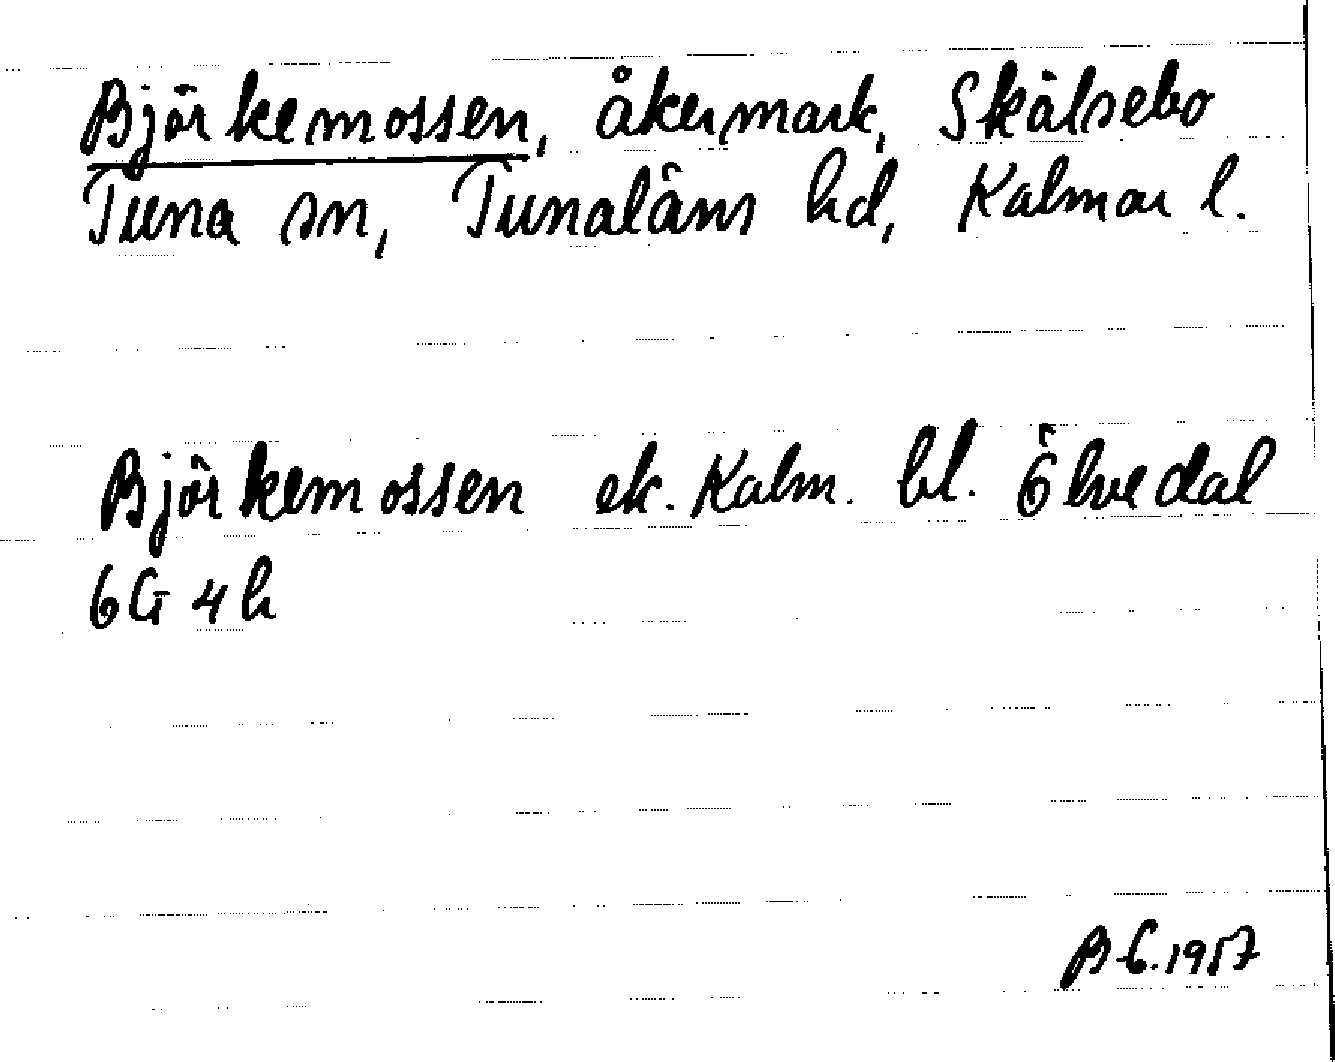 Björkemossen, åkermark, Skälsebo
Tuna sn, Tunaläns hd, Kalmar l.
Björkemossen ek. Kalm. bl. Ölvedal
6G 4h
1957